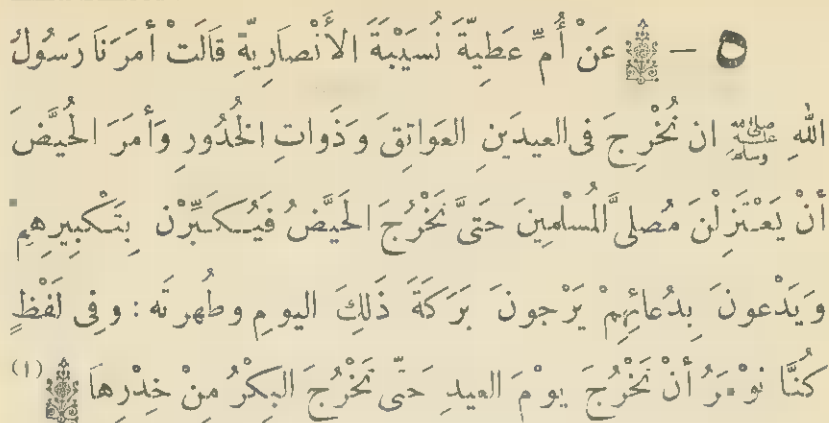 ٥ - ﴿ عَنْ أُمِّ عَطِيَّةَ نُسَيْبَةَ الأَنْصارِيّةِ قَالَتْ أَمَرَنَا رَسُولُ
اللهِ ﷺ ان نُخْرِجَ فى العيدَينِ العَواتِقَ وَذَواتِ الخُدُورِ وَأمَرَ الحُيَّضَ
أنْ يَعْتَزِلْنَ مُصلىَّ المُسْلمِينَ حَتىَّ نَخْرُجَ الحَيَّضُ فَيُكَبِّرْن بِتَكْبِيرِهِم
وَيَدْعونَ بِدُعائِهِمْ يَرْجونَ بَرَكَةَ ذَلِكَ اليومِ وطُهرتَه : وفى لَفْظٍ
كُنَّا نوْمَرُ أنْ نَخْرُجَ يوْمَ العيدِ حَتّى تَخْرُجَ البِكْرُ مِنْ خِدْرِهاَ ﴾ (١)